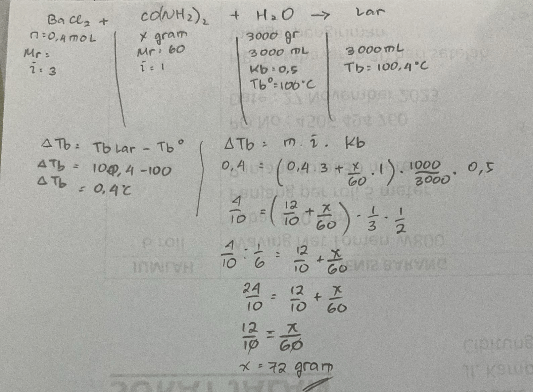 BaCl2 + CO(NH2)2 + H2O → Lar
n = 0,4 mol x gram 3000 gr
Mr = Mr: 60 3000 mL 3000 mL
i = 3 i = 1 Kb = 0,5 Tb = 100,4°C
Tb° = 100°C
ΔTb = Tb Lar - Tb°
ΔTb = 100,4 - 100
ΔTb = 0,4°C
ΔTb = m. i. Kb
0,4 = (0,4 3 + x/60 . 1) . 1000/3000 . 0,5
4/10 = (12/10 + x/60) . 1/3 . 1/2
4/10 : 1/6 = 12/10 + x/60
24/10 = 12/10 + x/60
12/10 = x/60
x = 72 gram
JUMLAH